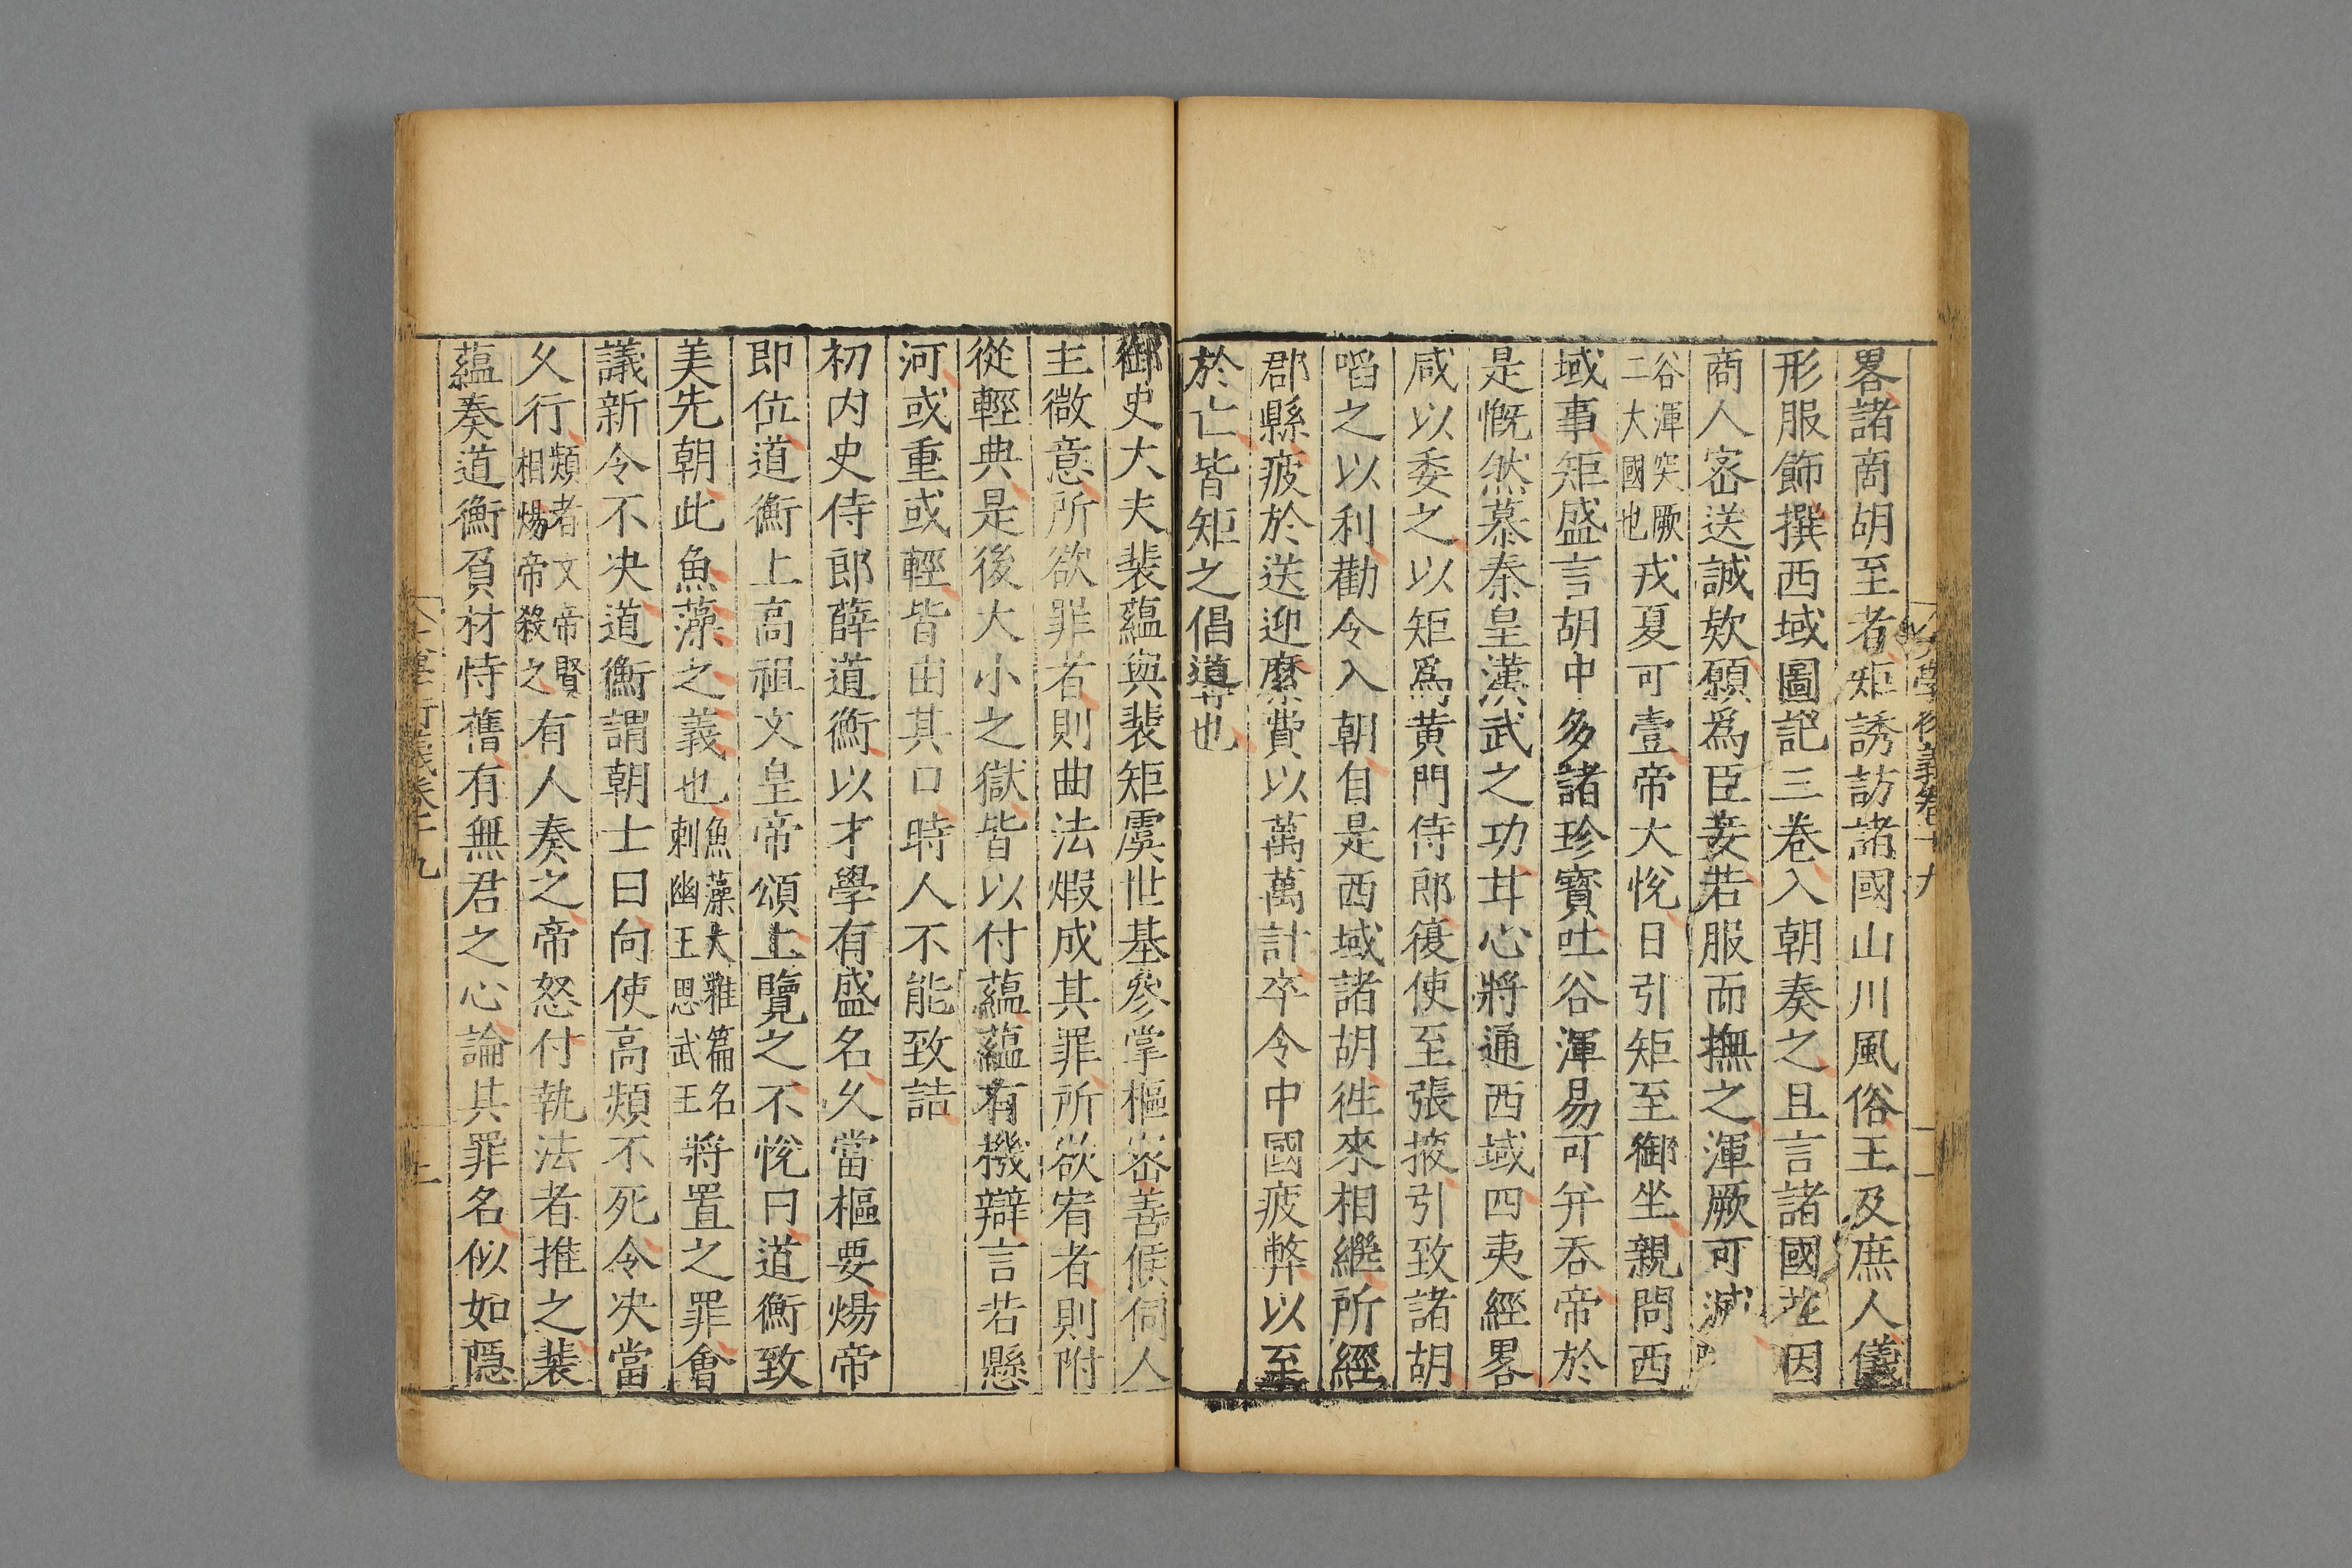 畧諸商胡至者矩誘訪諸國山川風俗王及庶人儀
形服飾撰西域圖記三卷入朝奏之且言諸國並因
商人宻送誠欵願爲臣妾若服而撫之渾厥可滅
谷渾突厥二大國也戎夏可壹帝大恱日引矩至御坐親問西
域事矩盛言胡中多諸珍寳吐谷渾易可并吞帝於
是慨然慕秦皇漢武之功甘心將通西域四夷經畧
咸以委之以矩爲黄門侍郎復使至張掖引致諸胡
啗之以利勸令入朝自是西域諸胡徃來相繼所經
郡縣疲於送迎糜費以萬萬計卒令中國疲弊以至
於亡皆矩之倡導也
御史大夫裴蘊與裴矩虞世基參掌樞宻善候伺人
主微意所欲罪者則曲法煆成其罪所欲宥者則附
從輕典是後大小之獄皆以付蘊蘊有機辯言若懸
河或重或輕皆由其口時人不能致詰
初内史侍郎薛道衡以才學有盛名久當樞要煬帝
即位道衡上高祖文皇帝頌上覽之不恱曰道衡致
美先朝此魚藻之義也魚藻大雅篇名刺幽王思武王將置之罪會
議新令不决道衡謂朝士曰向使高熲不死令决當
久行熲者文帝賢相煬帝殺之有人奏之帝怒付執法者推之裴
蘊奏道衡負材恃舊有無君之心論其罪名似如隱
大學衍義卷十九
大學衍義卷十九